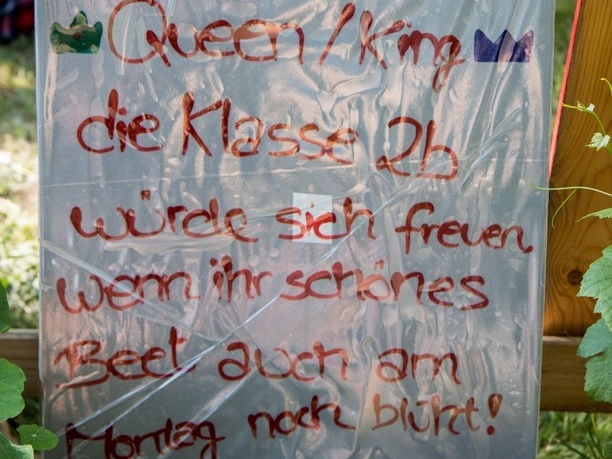 Queen/King
die Klasse 2b
würde sich freuen,
wenn ihr schönes
Beet auch am
Montag noch blüht!